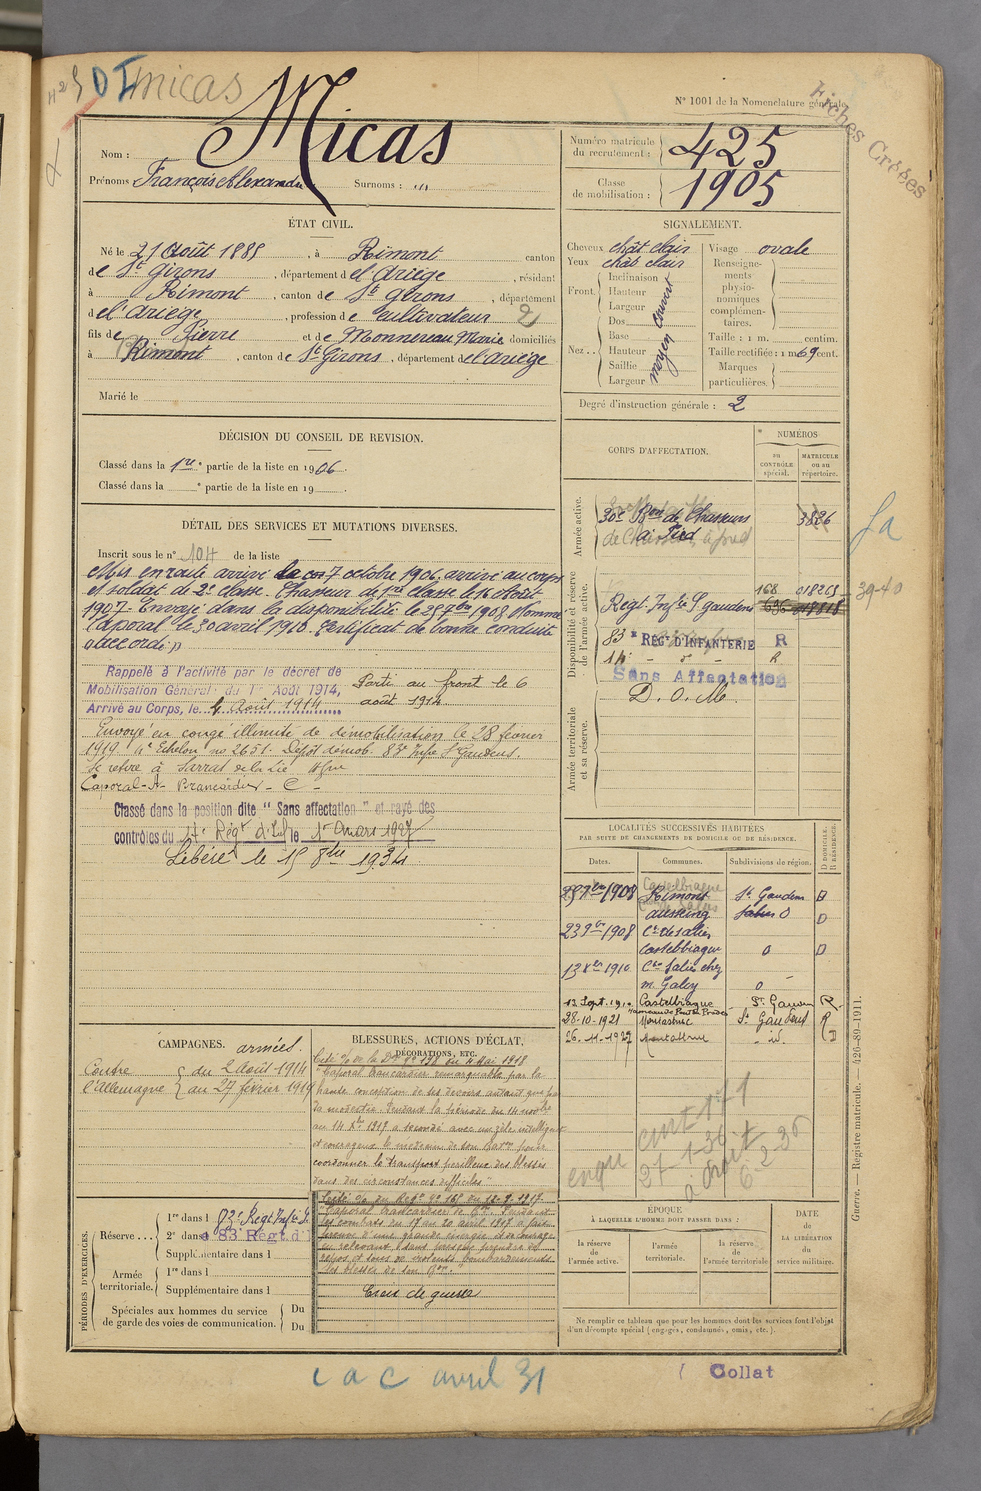 DI micas
N° 1001 de la Nomenclature générale.
Fiches Créées
Nom : Micas
Prénoms François Alexandre Surnoms : "
Numéro matricule du recrutement : 425
Classe de mobilisation : 1905
ÉTAT CIVIL.
Né le 21 Août 1885, à Rimont canton
de St Girons, département de l'Ariège, résidant
à Rimont, canton de St Girons, département
de l'Ariège, profession de Cultivateur 2
fils de Pierre et de Monnereau Marie domiciliés
à Rimont, canton de St Girons, département de l'Ariège
Marié le
SIGNALEMENT.
Cheveux chât clair Visage ovale
Yeux chât clair
Renseignements physionomiques complémentaires.
Front. Inclinaison
Hauteur
Largeur
Nez.. Dos
Base
Hauteur
Saillie
Largeur
moyen couvert
Taille : 1 m. centim.
Taille rectifiée : 1 m 69 cent.
Marques particulières.
Degré d'instruction générale : 2
DÉCISION DU CONSEIL DE REVISION.
Classé dans la 1re partie de la liste en 1906.
Classé dans la e partie de la liste en 19 .
DÉTAIL DES SERVICES ET MUTATIONS DIVERSES.
Inscrit sous le n° 104 de la liste
Mis en route arrivé le 7 octobre 1906. arrivé au corps
et soldat de 2e classe. Chasseur de 1re classe le 16 Août
1907. Envoyé dans la disponibilité le 25 7bre 1908 Nommé
Caporal le 30 avril 1910. Certificat de bonne conduite
accordé
Rappelé à l'activité par le décret de
Mobilisation Générale du 1er Août 1914,
Arrivé au Corps, le 4 Août 1914
Parti au front le 6
août 1914
Envoyé en congé illimité de démobilisation le 28 février
1919 4e Echelon no 2651. Dépôt démob. 83e Infie St Gaudens.
Se retire à
Caporal - Brancardier - C -
Classé dans la position dite "Sans affectation" et rayé des
contrôles du 14e Régt d'Inf le 1er Mars 1927
Libéré le 15 8bre 1934
CORPS D'AFFECTATION.
NUMÉROS
au CONTRÔLE spécial.
MATRICULE ou au répertoire.
Armée active.
30e Bon de Chasseurs
à Pied
3826
Disponibilité et réserve de l'armée active.
Regt Infie St gaudens
168 018205
83 e RÉGt D'INFANTERIE R
14 - d° - R
Sans Affectation
D. O. M.
39-40
Armée territoriale et sa réserve.
LOCALITÉS SUCCESSIVES HABITÉES
PAR SUITE DE CHANGEMENTS DE DOMICILE OU DE RÉSIDENCE.
Dates. Communes. Subdivisions de région.
D DOMICILE. R RÉSIDENCE.
25 7bre 1908 Rimont St Gaudens D
23 9bre 1908 Cton de Salies
Castelbiague D
13 Xbre 1910 Cton Salies chez
m. Galey
13. Sept. 1912 Castelbiague St Gaudens R
28-10-1921 Montastruc St Gaudens R
26-11-1927
CAMPAGNES. armées.
Contre l'Allemagne
du 2 août 1914
au 27 février 1919
BLESSURES, ACTIONS D'ÉCLAT, DÉCORATIONS, ETC.
"Caporal brancardier remarquable par la
haute conception de ses devoirs autant que par
sa modestie. Pendant la période du 14 novbre
au 14 Xbre 1917 a secondé avec un zèle intelligent
et courageux le médecin de son Baton pour
coordonner le transport périlleux des blessés
dans des circonstances difficiles"
"Caporal brancardier de Cie. Pendant
les combats du 17 au 20 avril 1917 a fait
preuve d'une grande énergie et de courage
en relevant, sans presque prendre de
repos et sous de violents bombardements
les blessés de son Bon."
Croix de guerre
27-1-36
6-2-36
PÉRIODES D'EXERCICES.
Réserve... 1re dans l 83e Regt Infie
2e dans l e 83 Régt d'I
Supplémentaire dans l
Armée territoriale. 1re dans l
Supplémentaire dans l
Spéciales aux hommes du service de garde des voies de communication. Du
Du
ÉPOQUE
À LAQUELLE L'HOMME DOIT PASSER DANS :
la réserve de l'armée active.
l'armée territoriale.
la réserve de l'armée territoriale
DATE de LA LIBÉRATION du service militaire.
Ne remplir ce tableau que pour les hommes dont les services font l'objet
d'un décompte spécial (engagés, condamnés, omis, etc.).
Guerre. — Registre matricule. — 426-89-1911.
c a c avril 31
Collat